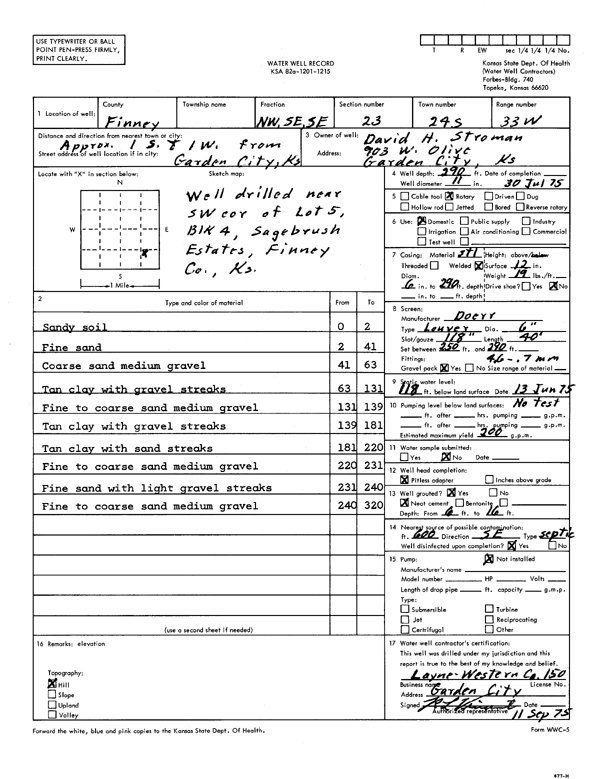 USE TYPEWRITER OR BALL
POINT PEN-PRESS FIRMLY,
PRINT CLEARLY.
T R EW sec 1/4 1/4 1/4 No.
WATER WELL RECORD
KSA 82a-1201-1215
Kansas State Dept. Of Health
(Water Well Contractors)
Forbes-Bldg. 740
Topeka, Kansas 66620
1 Location of well: County Finney
Township name
Fraction NW, SE, SE
Section number 23
Town number 24S
Range number 33W
Distance and direction from nearest town or city:
Approx. 1 S. & 1 W. from
Street address of well location if in city: Garden City, Ks
3 Owner of well: David H. Stroman
903 W. Olive
Address: Garden City, Ks
Locate with "X" in section below:
N
W E
S
1 Mile
X
Sketch map:
Well drilled near
SW cor of Lot 5,
Blk 4, Sagebrush
Estates, Finney
Co., Ks.
4 Well depth: 290 ft. Date of completion
Well diameter 11 in. 30 Jul 75
5 Cable tool X Rotary Driven Dug
Hollow rod Jetted Bored Reverse rotary
6 Use: X Domestic Public supply Industry
Irrigation Air conditioning Commercial
Test well
7 Casing: Material stl Height: above/below
Threaded Welded X Surface 12 in.
Diam. Weight 19 lbs./ft.
6 in. to 290 ft. depth Drive shoe? Yes X No
in. to ft. depth
8 Screen:
Manufacturer Doerr
Type Louver Dia. 6"
Slot/gauze 118" Length 40'
Set between 250 ft. and 290 ft.
Fittings: 46-.7 mm
Gravel pack X Yes No Size range of material
9 Static water level:
118 ft. below land surface Date 13 Jun 75
10 Pumping level below land surfaces: No test
ft. after hrs. pumping g.p.m.
ft. after hrs. pumping g.p.m.
Estimated maximum yield 200 g.p.m.
11 Water sample submitted:
Yes X No Date
12 Well head completion:
X Pitless adapter Inches above grade
13 Well grouted? X Yes No
X Neat cement Bentonite
Depth: From 6 ft. to 16 ft.
14 Nearest source of possible contamination:
ft. 600 Direction SE Type septic
Well disinfected upon completion? X Yes No
15 Pump: X Not installed
Manufacturer's name
Model number HP Volts
Length of drop pipe ft. capacity g.m.p.
Type:
Submersible Turbine
Jet Reciprocating
Certrifugal Other
2 Type and color of material From To
Sandy soil 0 2
Fine sand 2 41
Coarse sand medium gravel 41 63
Tan clay with gravel streaks 63 131
Fine to coarse sand medium gravel 131 139
Tan clay with gravel streaks 139 181
Tan clay with sand streaks 181 220
Fine to coarse sand medium gravel 220 231
Fine sand with light gravel streaks 231 240
Fine to coarse sand medium gravel 240 320
(use a second sheet if needed)
16 Remarks: elevation
Topography:
X Hill
Slope
Upland
Valley
17 Water well contractor's certification:
This well was drilled under my jurisdiction and this
report is true to the best of my knowledge and belief.
Layne-Western Co. 150
Business name License No.
Address Garden City
Signed Date
Authorized representative 11 Sep 75
Forward the white, blue and pink copies to the Kansas State Dept. Of Health.
Form WWC-5
477-H